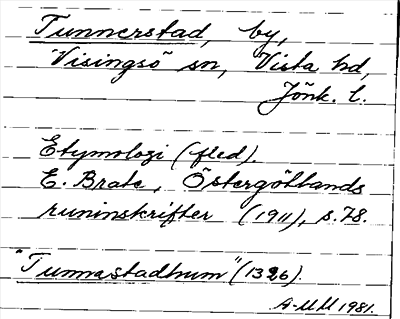 Tunnerstad, by,
Visingsö sn, Vista hd,
Jönk. l.
Etymologi (fled).
E. Brate, Östergötlands
runinskrifter (1911), s. 78.
"Tunnastadhum" (1326).
A-MM 1981.